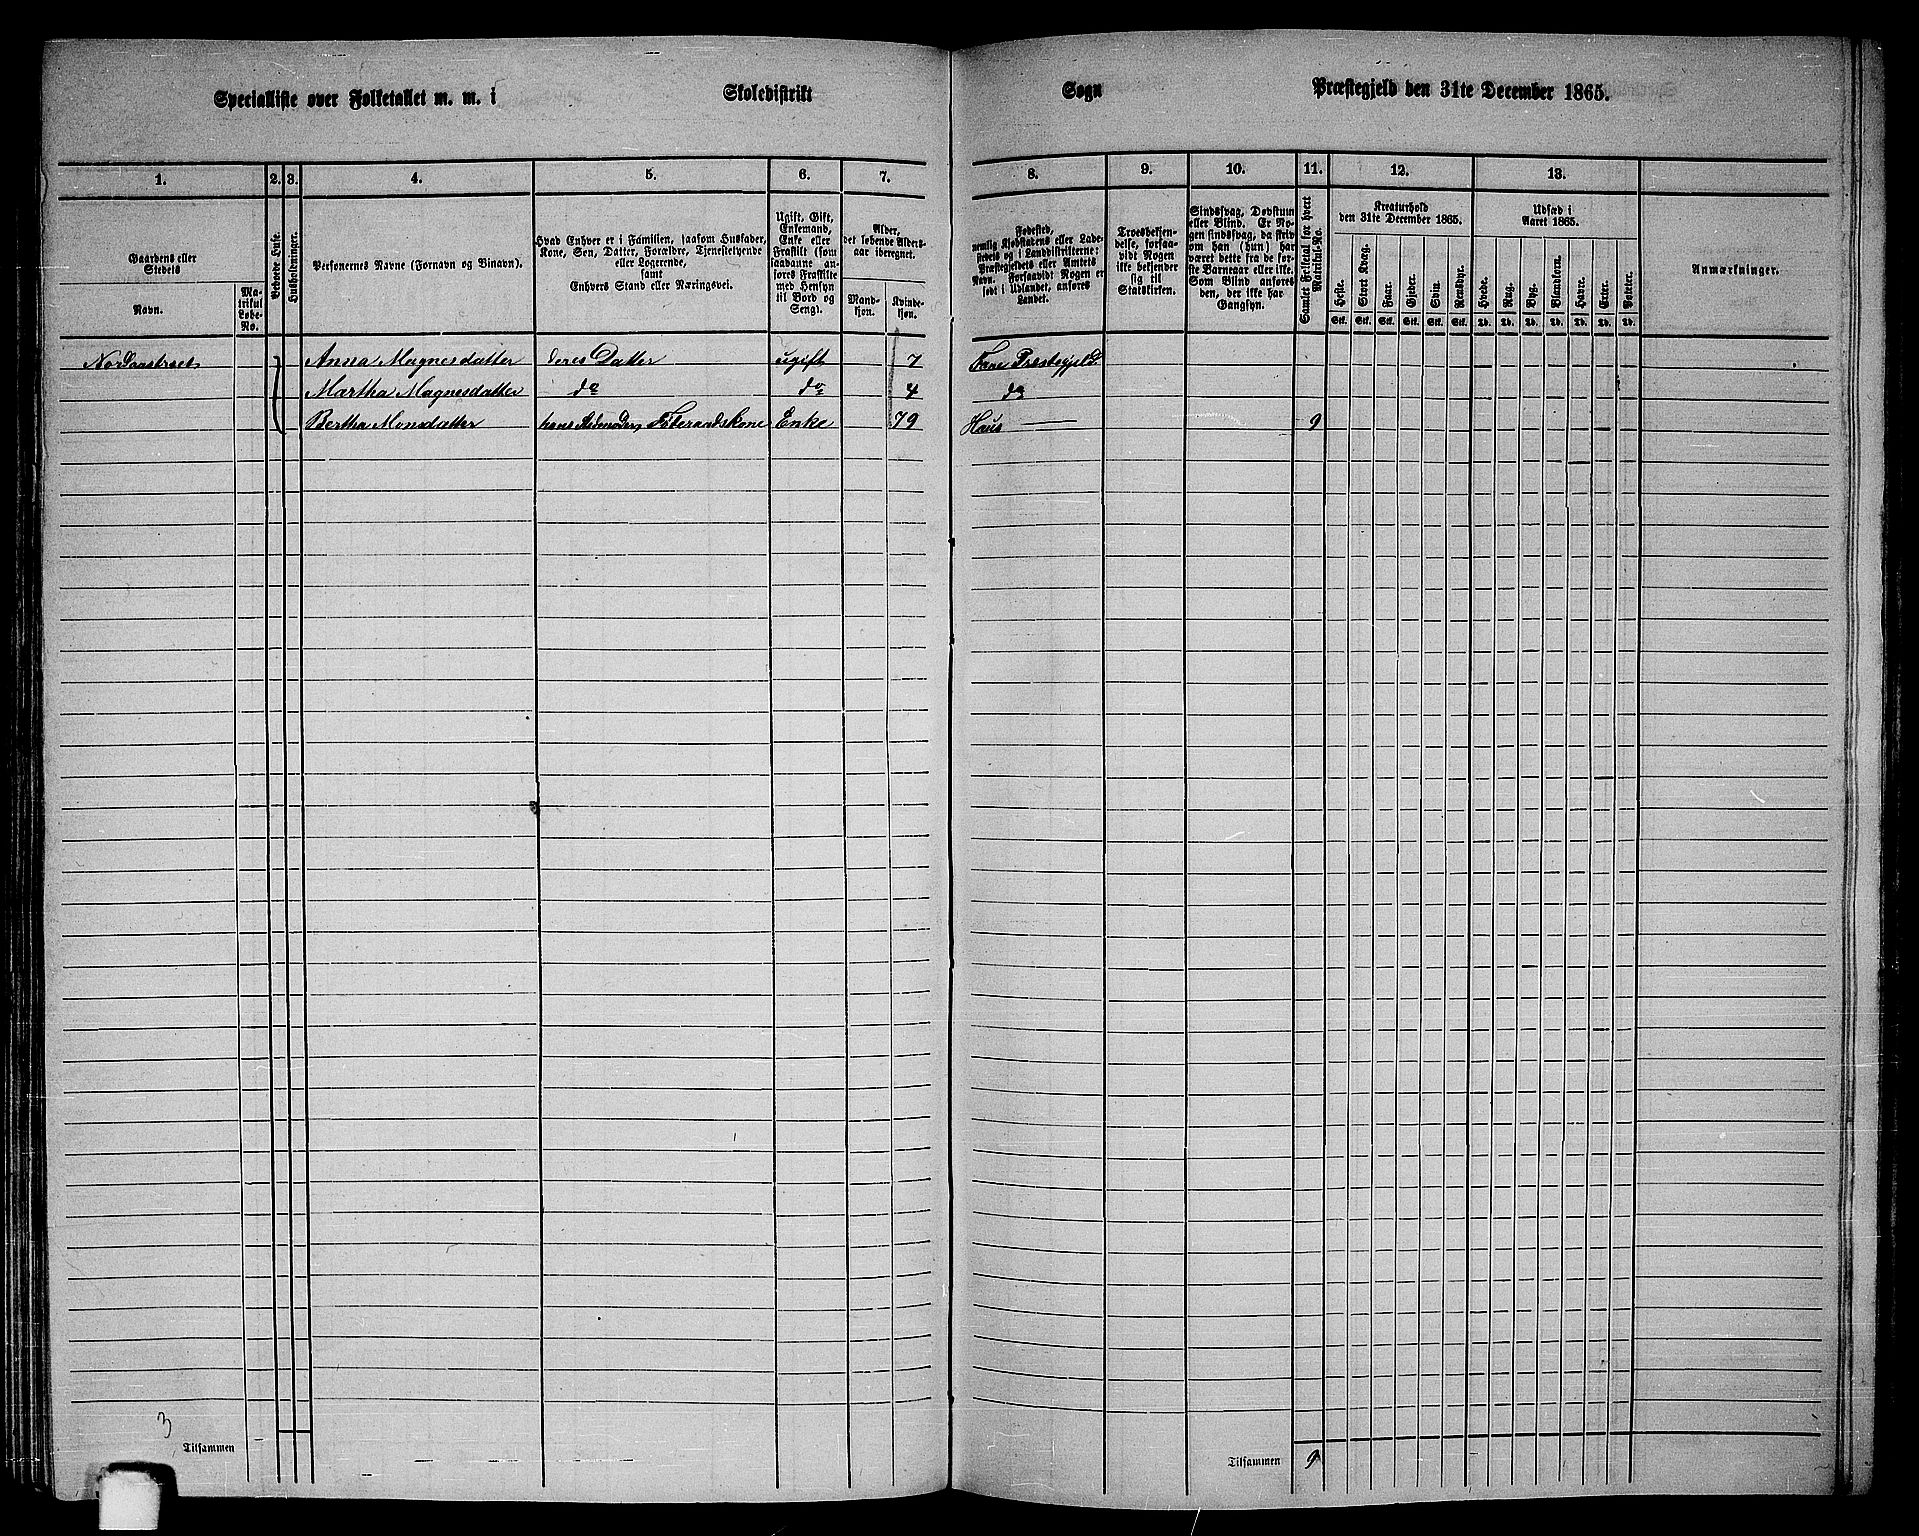 Specialliste over Folketallet m. m. i Skoledistrikt Sogn Præstegjeld den 31te December 1865.
1. 2. 3. 4. 5. 6. 7. 8. 9. 10. 11. 12. 13.
Gaardens eller
Stedets
Navn.
Ma-
trikul
Løbe-
No.
Beboede Huse.
Husholdninger.
Personernes Navne (Fornavn og Binavn).
Hvad Enhver er i Familien, saasom Husfader,
Kone, Søn, Datter, Forældre, Tjenestetyende
eller Logerende,
samt
Enhvers Stand eller Næringsvei.
Ugift, Gift,
Enkemand,
Enke eller
Fraskilt (som
saadanne an-
føres Fraskilte
med Hensyn
til Bord og
Seng).
Alder,
det løbende Alders-
aar iberegnet.
Mand-
kjøn.
Kvinde-
kjøn.
Fødested,
nemlig Kjøbstadens eller Lade-
stedets og i Landdistrikterne:
Præstegjeldets eller Amtets
Navn. Forsaavidt Nogen er
født i Udlandet, anføres
Landet.
Troesbekjen-
delse, forsaa-
vidt Nogen
ikke bekjender
sig til
Statskirken.
Sindssvag, Døvstum
eller Blind. Er No-
gen sindssvag, da skriv
om han (hun) har
været dette fra de før-
ste Barneaar eller ikke.
Som Blind anføres
den, der ikke har
Gangsyn.
Samlet Folketal for hvert
Matrikul-No.
Kreaturhold
den 31te December 1865.
Heste. Stort Kvæg. Faar. Gjeder. Svin. Rensdyr.
Stk. Stk. Stk. Stk. Stk. Stk.
Udsæd i
Aaret 1865.
Hvede. Rug. Byg. Blandkorn. Havre. Erter. Poteter.
Td. Td. Td. Td. Td. Td. Td.
Anmærkninger.
Anna Magnesdatter deres Datter ugift 7 Fane Præstegjeld
Martha Magnesdatter do do 4 do
Bertha Monsdatter Føderaadskone Enke 79 Haus 9
3
Tilsammen
Tilsammen 9